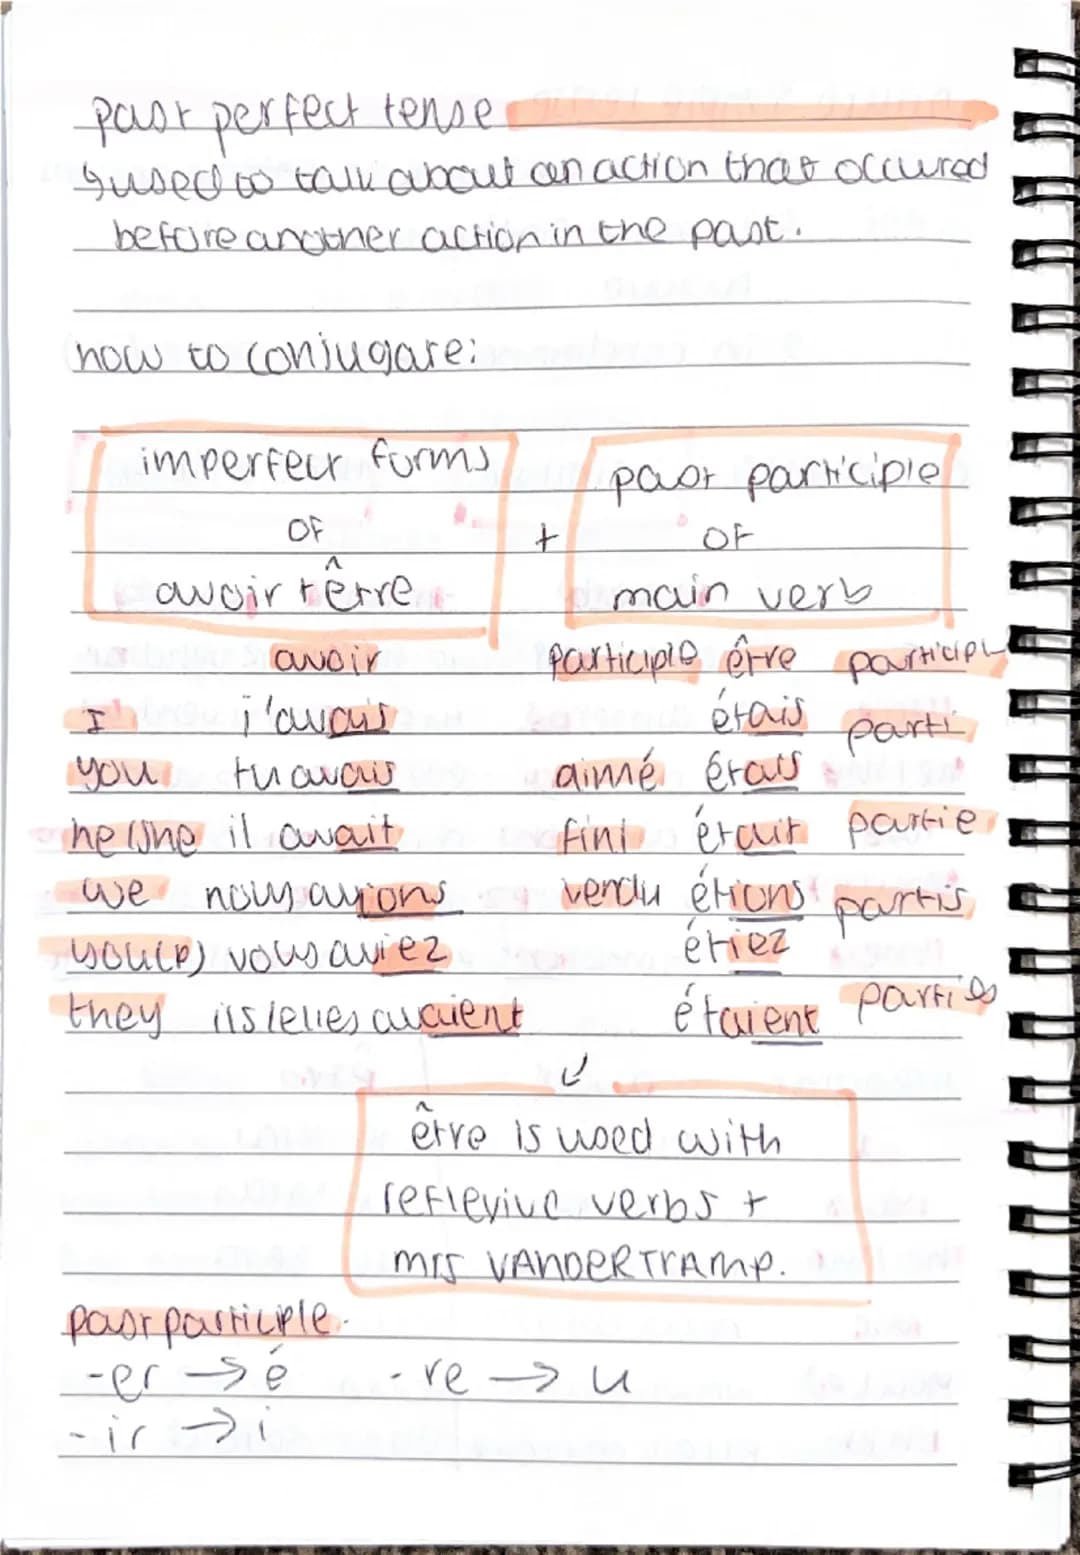 past perfect tense
↳ used to talk about an action that occured
before another action in the past.
how to conjugate:
imperfect forms
of
avoir + être
+
past participle
of
main verb
avoir participle être participle
I j'avais étais parti
you tu avais aimé étais
he/she il avait fini était partie
we nous avions vendu étions partis
you(p) vous aviez étiez
they ils/elles avaient étaient parties
↙
être is used with
reflexive verbs +
mrs VANDERTRAMP.
past participle.
-er → é - re → u
-ir → i